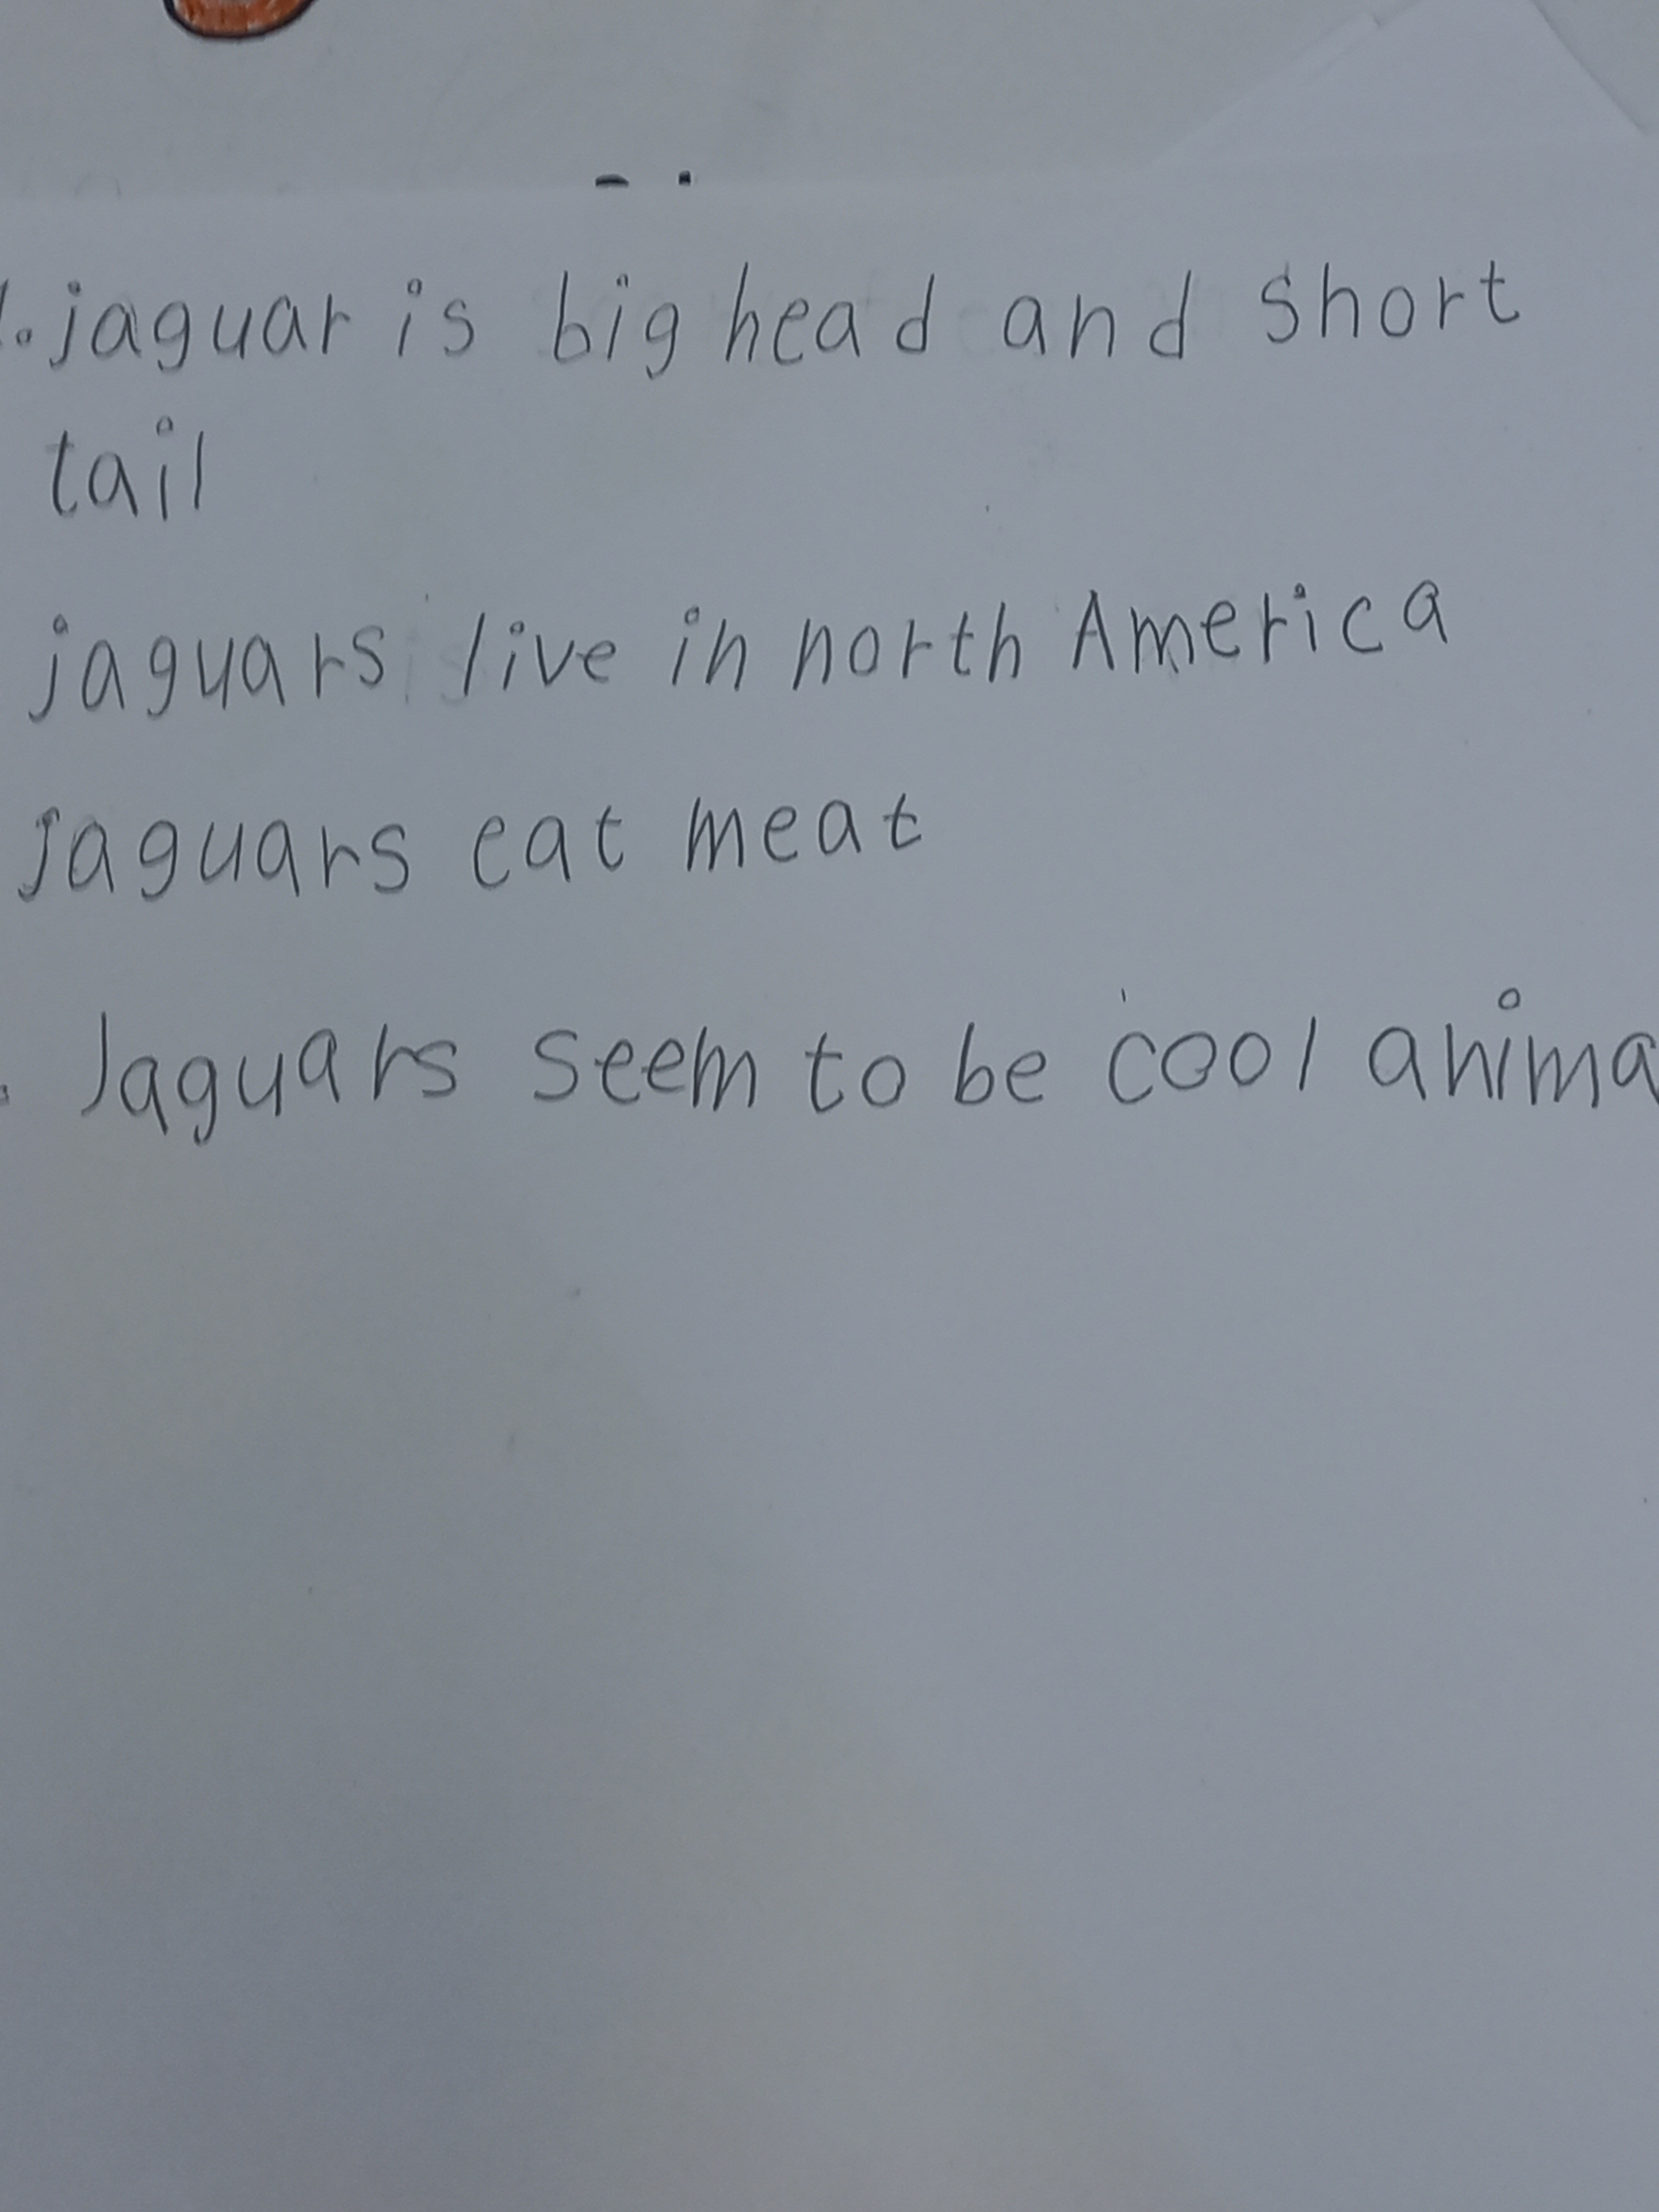 1. jaguar is big head and short
tail
jaguars live in north America
jaguars eat meat
. Jaguars seem to be cool anima